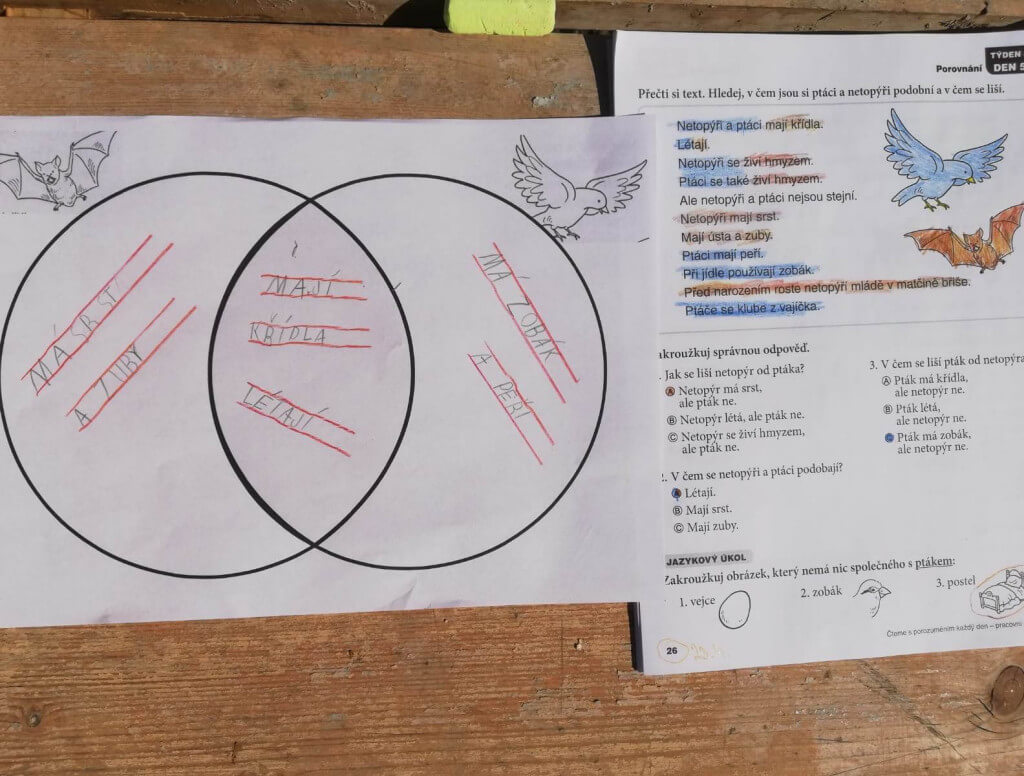 MÁ SRST
A ZUBY
MAJÍ
KŘÍDLA
LÉTAJÍ
MÁ ZOBÁK
A PEŘÍ
Porovnání
TÝDEN
DEN 5
Přečti si text. Hledej, v čem jsou si ptáci a netopýři podobní a v čem se liší.
Netopýři a ptáci mají křídla.
Létají.
Netopýři se živí hmyzem.
Ptáci se také živí hmyzem.
Ale netopýři a ptáci nejsou stejní.
Netopýři mají srst.
Mají ústa a zuby.
Ptáci mají peří.
Při jídle používají zobák.
Před narozením roste netopýří mládě v matčině břiše.
Ptáče se klube z vajíčka.
akroužkuj správnou odpověď.
. Jak se liší netopýr od ptáka?
A Netopýr má srst,
ale pták ne.
B Netopýr létá, ale pták ne.
C Netopýr se živí hmyzem,
ale pták ne.
2. V čem se netopýři a ptáci podobají?
A Létají.
B Mají srst.
C Mají zuby.
3. V čem se liší pták od netopýra
A Pták má křídla,
ale netopýr ne.
B Pták létá,
ale netopýr ne.
C Pták má zobák,
ale netopýr ne.
JAZYKOVÝ ÚKOL
Zakroužkuj obrázek, který nemá nic společného s ptákem:
1. vejce
2. zobák
3. postel
Čteme s porozuměním každý den – pracovní
26